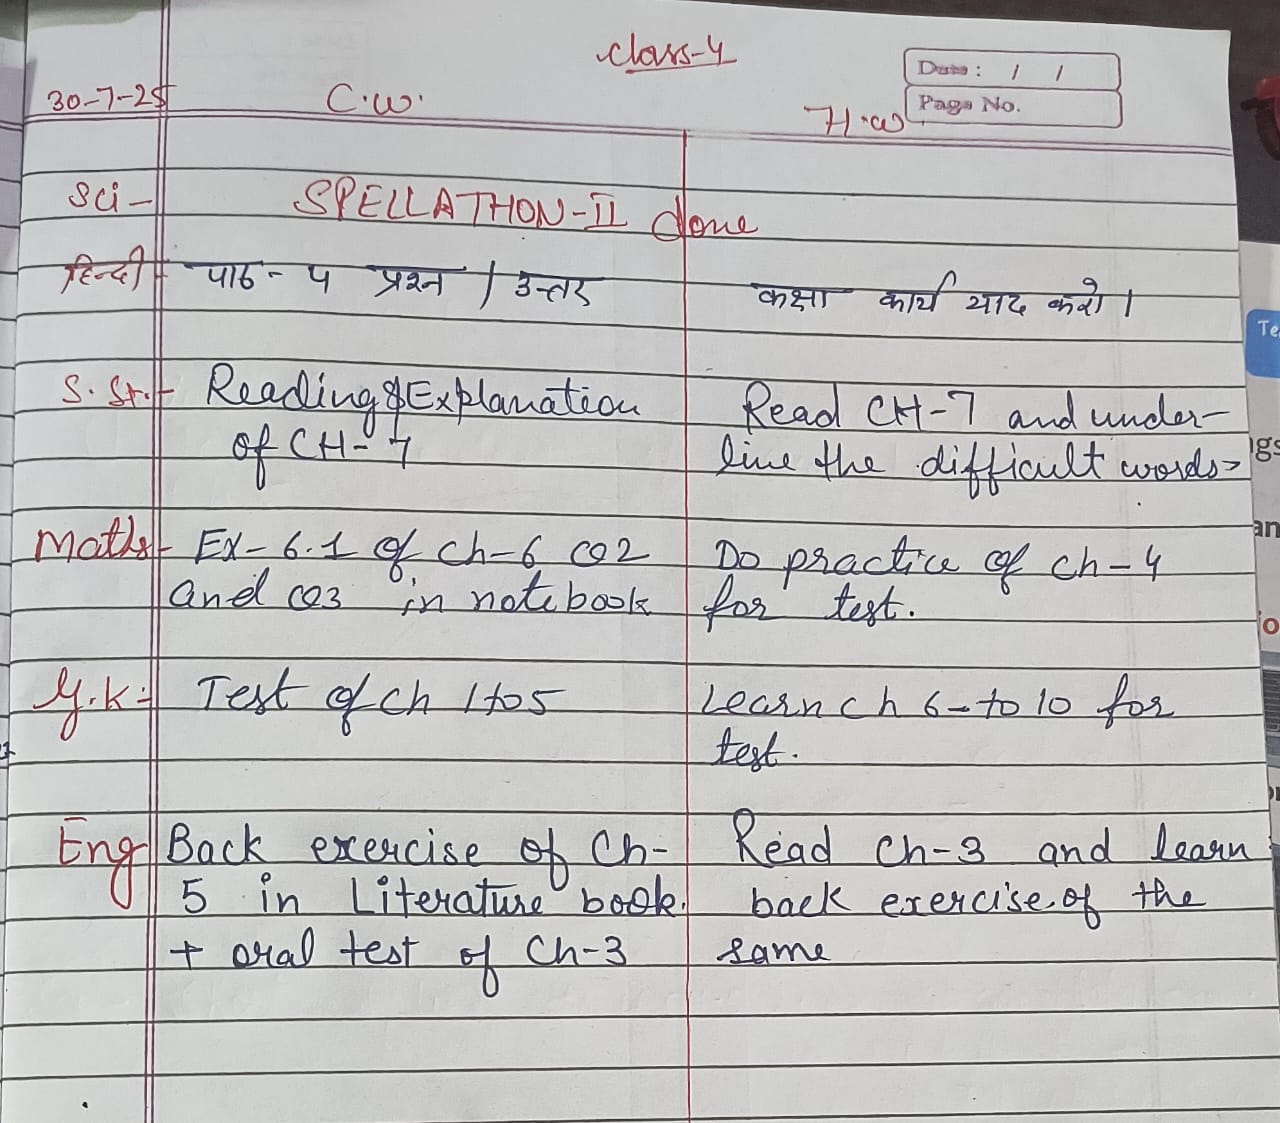 Class-4
Date: / /
Page No.
30-7-25 C.W. H.W
Sci- SPELLATHON-II done
हिन्दी- पाठ- ५ प्रश्न / उत्तर कक्षा कार्य याद करो ।
S.St.- Reading & Explanation Read CH-7 and under-
of CH-7 line the difficult words
Maths- Ex-6.1 of ch-6 CQ2 Do practice of ch-4
and CQ3 in notebook for test.
G.K- Test of ch 1 to 5 Learn ch 6-to 10 for
test.
Eng Back exercise of Ch- Read Ch-3 and learn
5 in Literature book. back exercise of the
+ oral test of Ch-3 same